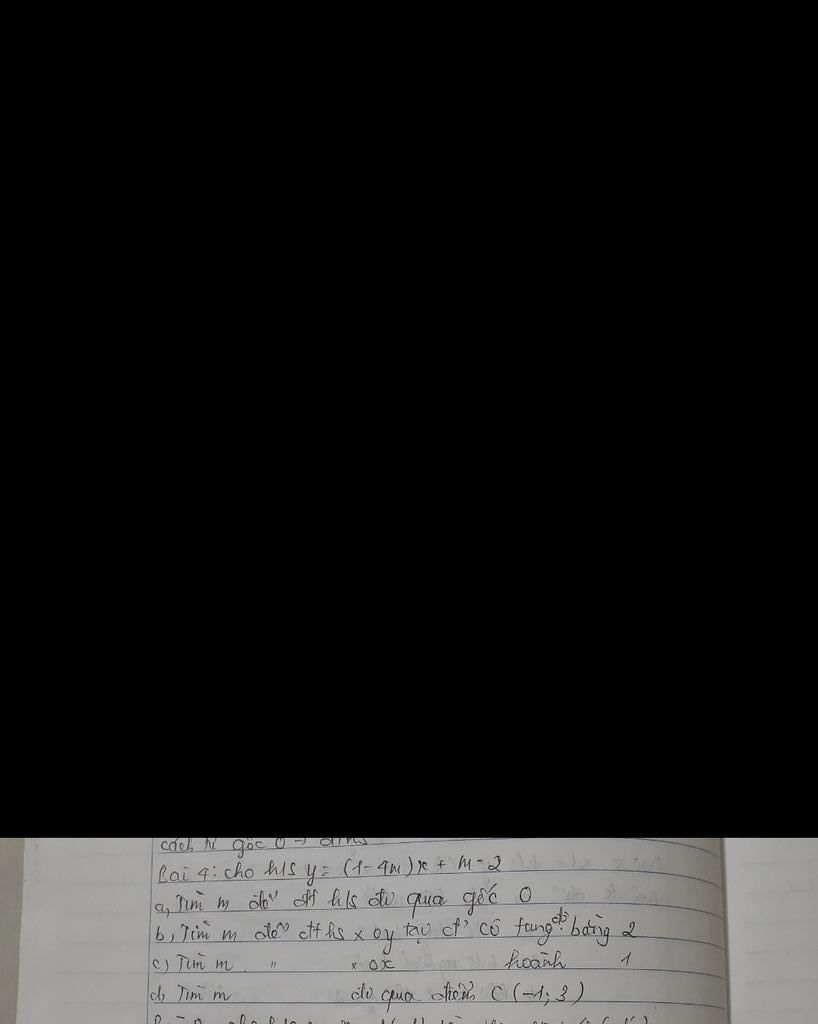 cách từ gốc O →
Bài 4: cho h/s y = (1-4m)x + m-2
a, Tìm m để đt h/s đi qua gốc O
b, Tìm m để đths x oy tại đ' có tung độ bằng 2
c) Tìm m " x ox hoành 1
d) Tìm m đi qua điểm C (-1; 3)